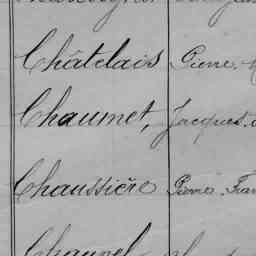 Châtelais Pierre.
Chaumet, Jacques.
Chaussière Pierre. Fran
Chauvel